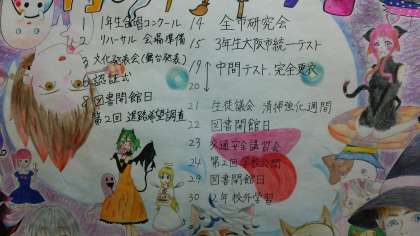 1 1年生合唱コンクール
2 リハーサル 会場準備
3 文化発表会(舞台発表)
8 図書開館日
第2回 進路希望調査
14 全市研究会
15 3年生大阪市統一テスト
19 ↕ 中間テスト、完全更衣
20
21 生徒議会 清掃強化週間
22 図書開館日
23 交通安全講習会
24 第2回学校公開
29 図書開館日
30 2年校外学習